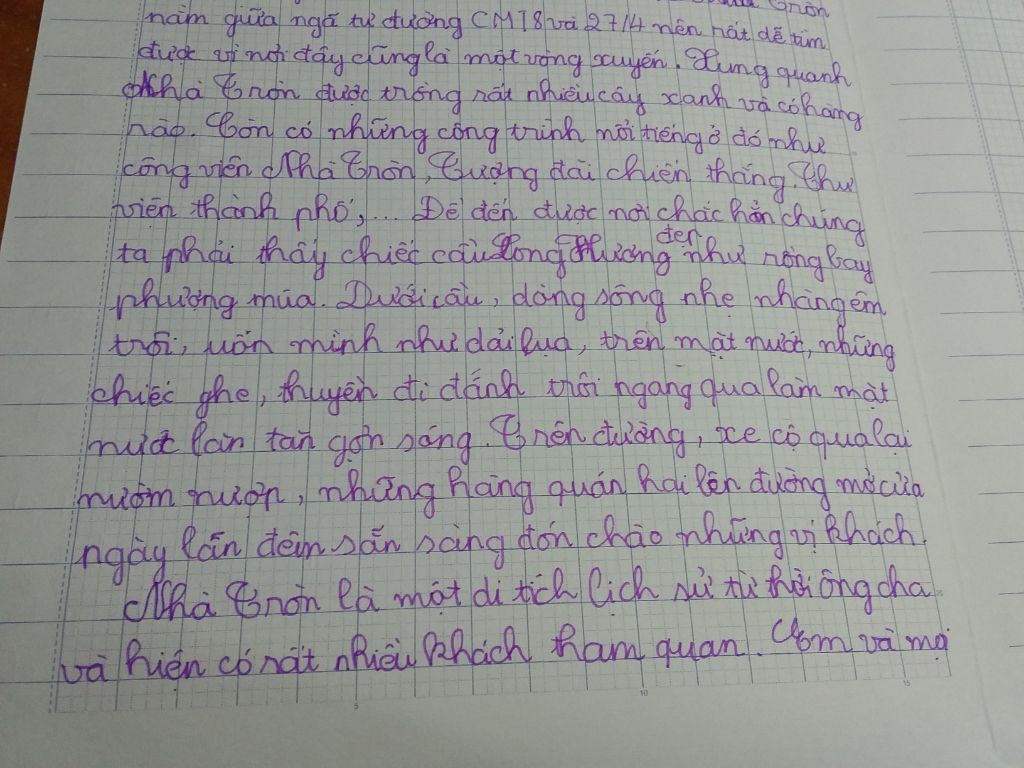 Tròn
nằm giữa ngã tư đường CMT8 và 27/4 nên rất dễ tìm
được vì nơi đây cũng là một vòng xuyến. Xung quanh
Nhà Tròn được trồng rất nhiều cây xanh và có hàng
rào. Còn có những công trình nổi tiếng ở đó như
công viên Nhà Tròn, Tượng đài chiến thắng, Thư
viện thành phố,... Để đến được nơi chắc hẳn chúng
ta phải thấy chiếc cầu Long Hương đen như rồng bay
phượng múa. Dưới cầu, dòng sông nhẹ nhàng êm
trôi, uốn mình như dải lụa, trên mặt nước, những
chiếc ghe, thuyền đi đánh trôi ngang qua làm mặt
nước lan tản gợn sóng. Trên đường, xe cộ qua lại
nườm nượp, những hàng quán hai lên đường mở cửa
ngày lẫn đêm sẵn sàng đón chào những vị khách.
Nhà Tròn là một di tích lịch sử từ thời ông cha
và hiện có rất nhiều khách tham quan. Em và mọ
5 10 15